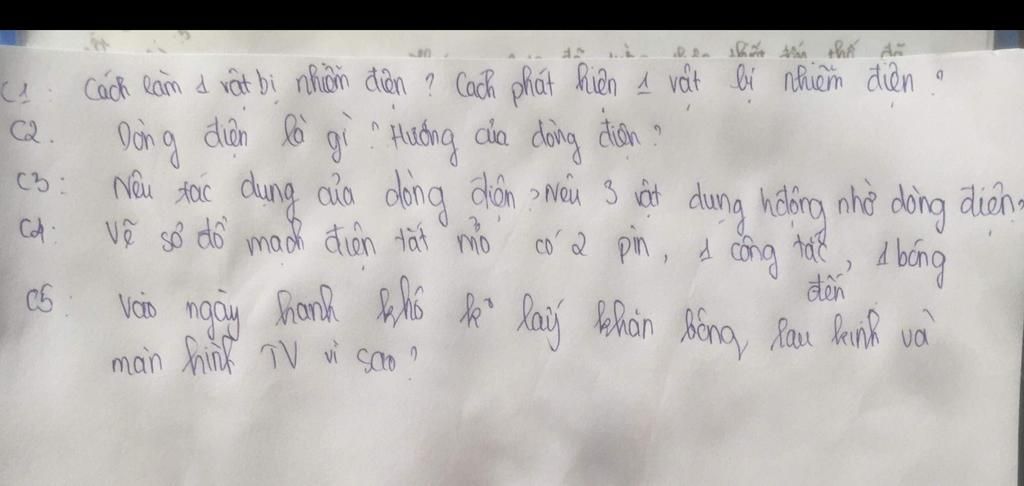 C1: Cách làm 1 vật bị nhiễm điện? Cách phát hiện 1 vật bị nhiễm điện?
C2. Dòng điện là gì? Hướng của dòng điện?
C3: Nêu tác dụng của dòng điện? Nêu 3 vật dụng hđộng nhờ dòng điện?
C4: Vẽ sơ đồ mạch điện tắt mở có 2 pin, 1 công tắc, 1 bóng
đèn
C5: Vào ngày hanh khô k° lấy khăn bông lau kính và
màn hình TV vì sao?